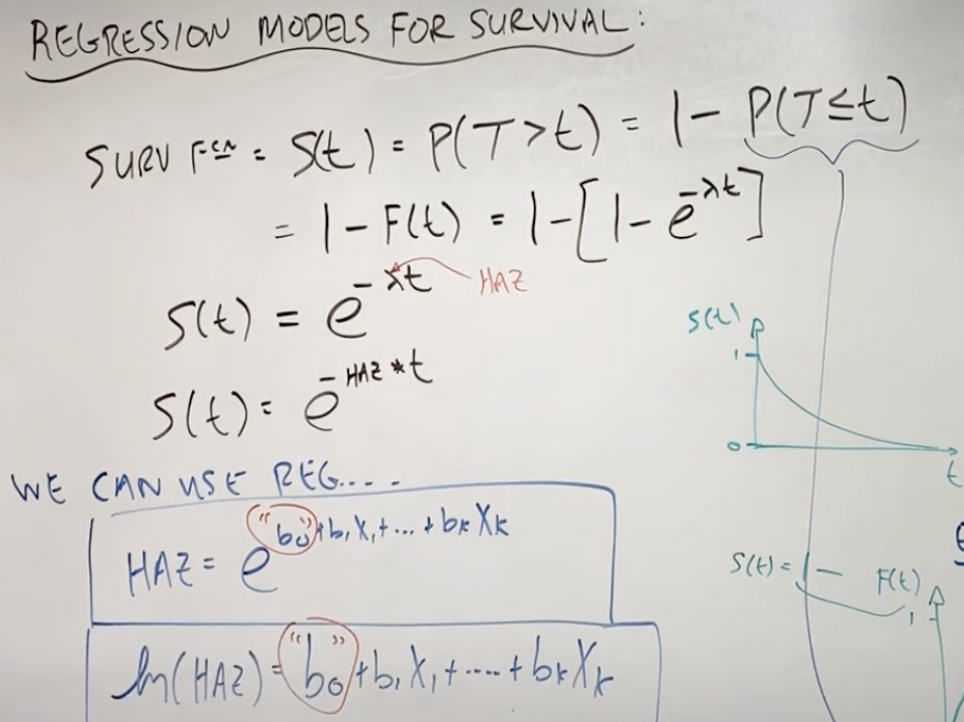 REGRESSION MODELS FOR SURVIVAL:
SURV FCN = S(t) = P(T>t) = 1 - P(T≤t)
= 1 - F(t) = 1 - [1 - e^{-λt}]
S(t) = e^{-λt} HAZ
S(t) = e^{-HAZ*t}
S(t)
1
0
t
WE CAN USE REG....
HAZ = e^{"b₀"+b₁X₁+...+bₖXₖ}
S(t) = 1 - F(t)
1
ln(HAZ) = "b₀"+b₁X₁+....+bₖXₖ